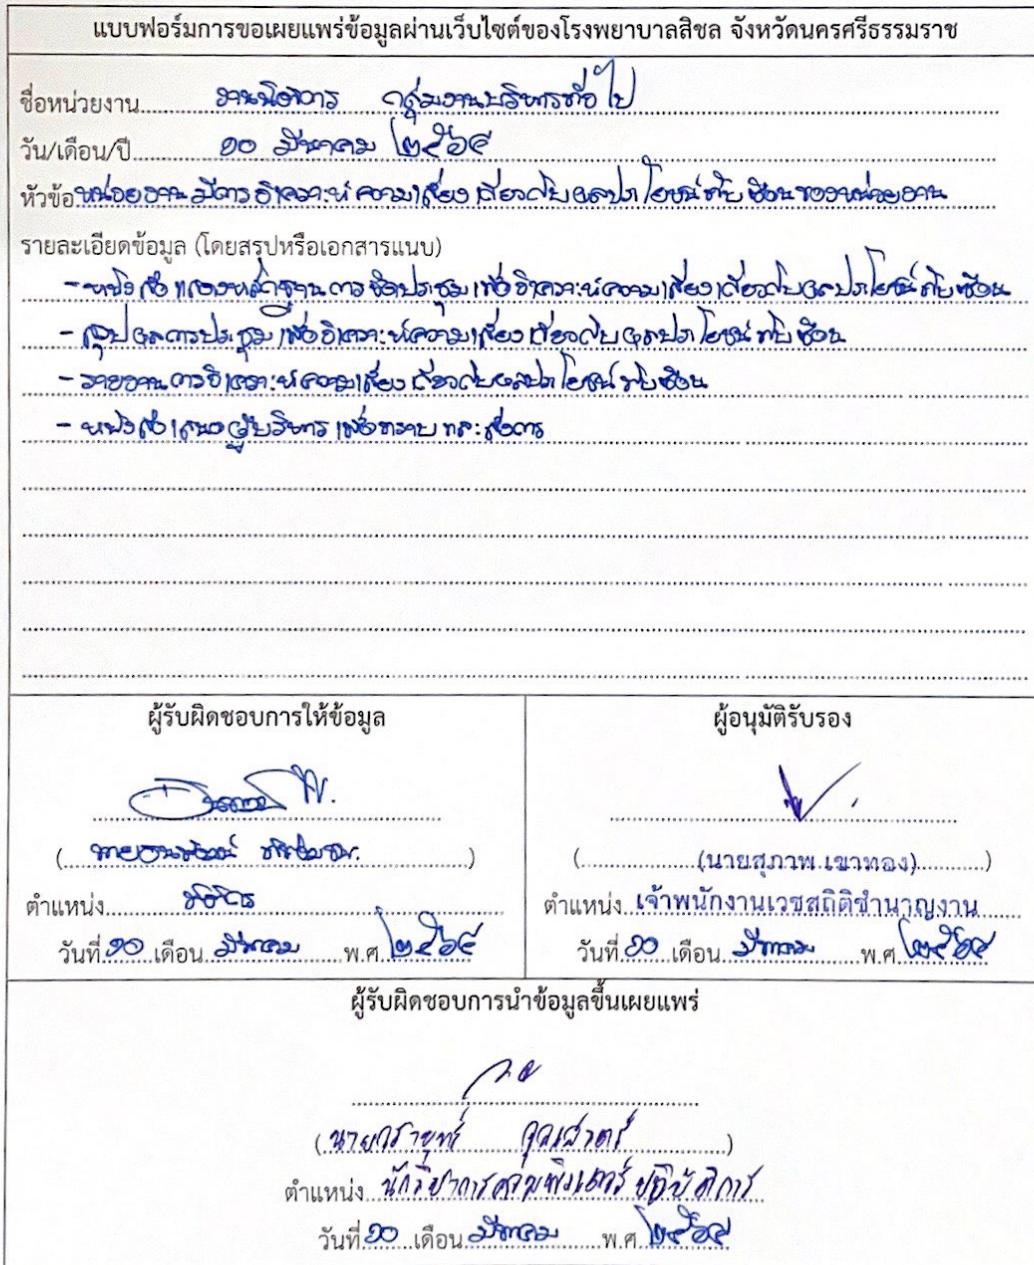 แบบฟอร์มการขอเผยแพร่ข้อมูลผ่านเว็บไซต์ของโรงพยาบาลสิชล จังหวัดนครศรีธรรมราช
ชื่อหน่วยงาน งานนิติการ กลุ่มงานบริหารทั่วไป
วัน/เดือน/ปี ๑๐ มีนาคม ๒๕๖๔
หัวข้อ หน่วยงานมีการวิเคราะห์ความเสี่ยงเกี่ยวกับผลประโยชน์ทับซ้อนของหน่วยงาน
รายละเอียดข้อมูล (โดยสรุปหรือเอกสารแนบ)
- หนังสือแสดงหลักฐานการจัดประชุมเพื่อวิเคราะห์ความเสี่ยงเกี่ยวกับผลประโยชน์ทับซ้อน
- สรุปผลการประชุมเพื่อวิเคราะห์ความเสี่ยงเกี่ยวกับผลประโยชน์ทับซ้อน
- รายงานการวิเคราะห์ความเสี่ยงเกี่ยวกับผลประโยชน์ทับซ้อน
- หนังสือเสนอผู้บริหารเพื่อทราบและสั่งการ
ผู้รับผิดชอบการให้ข้อมูล
ตำแหน่ง นิติกร
วันที่ ๑๐ เดือน มีนาคม พ.ศ. ๒๕๖๔
ผู้อนุมัติรับรอง
(นายสุภาพ เขาทอง)
ตำแหน่ง เจ้าพนักงานเวชสถิติชำนาญงาน
วันที่ ๑๐ เดือน มีนาคม พ.ศ. ๒๕๖๔
ผู้รับผิดชอบการนำข้อมูลขึ้นเผยแพร่
ตำแหน่ง นักวิชาการคอมพิวเตอร์ปฏิบัติการ
วันที่ ๑๐ เดือน มีนาคม พ.ศ. ๒๕๖๔